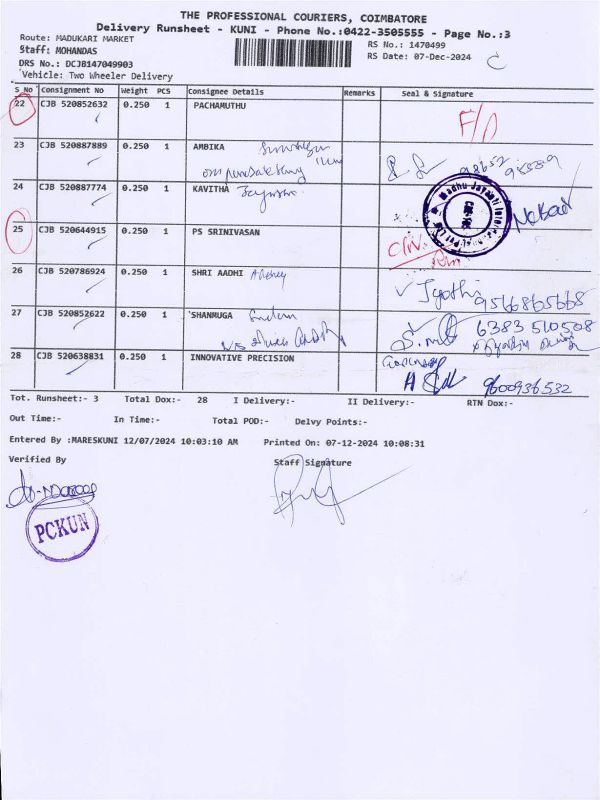 THE PROFESSIONAL COURIERS, COIMBATORE
Delivery Runsheet - KUNI - Phone No.:0422-3505555 - Page No.:3
Route: MADUKARI MARKET
RS No.: 1470499
Staff: MOHANDAS
RS Date: 07-Dec-2024
DRS No.: DCJB147049903
Vehicle: Two Wheeler Delivery
S No Consignment No Weight PCS Consignee Details Remarks Seal & Signature
22 CJB 520852632 0.250 1 PACHAMUTHU
23 CJB 520887889 0.250 1 AMBIKA
24 CJB 520887774 0.250 1 KAVITHA
25 CJB 520644915 0.250 1 PS SRINIVASAN
26 CJB 520786924 0.250 1 SHRI AADHI
Jyothi 9566865668
27 CJB 520852622 0.250 1 SHANMUGA
6383 510508
28 CJB 520638831 0.250 1 INNOVATIVE PRECISION
9600936532
Tot. Runsheet:- 3 Total Dox:- 28 I Delivery:- II Delivery:- RTN Dox:-
Out Time:- In Time:- Total POD:- Delvy Points:-
Entered By :MARESKUNI 12/07/2024 10:03:10 AM Printed On: 07-12-2024 10:08:31
Verified By Staff Signature
PCKUN